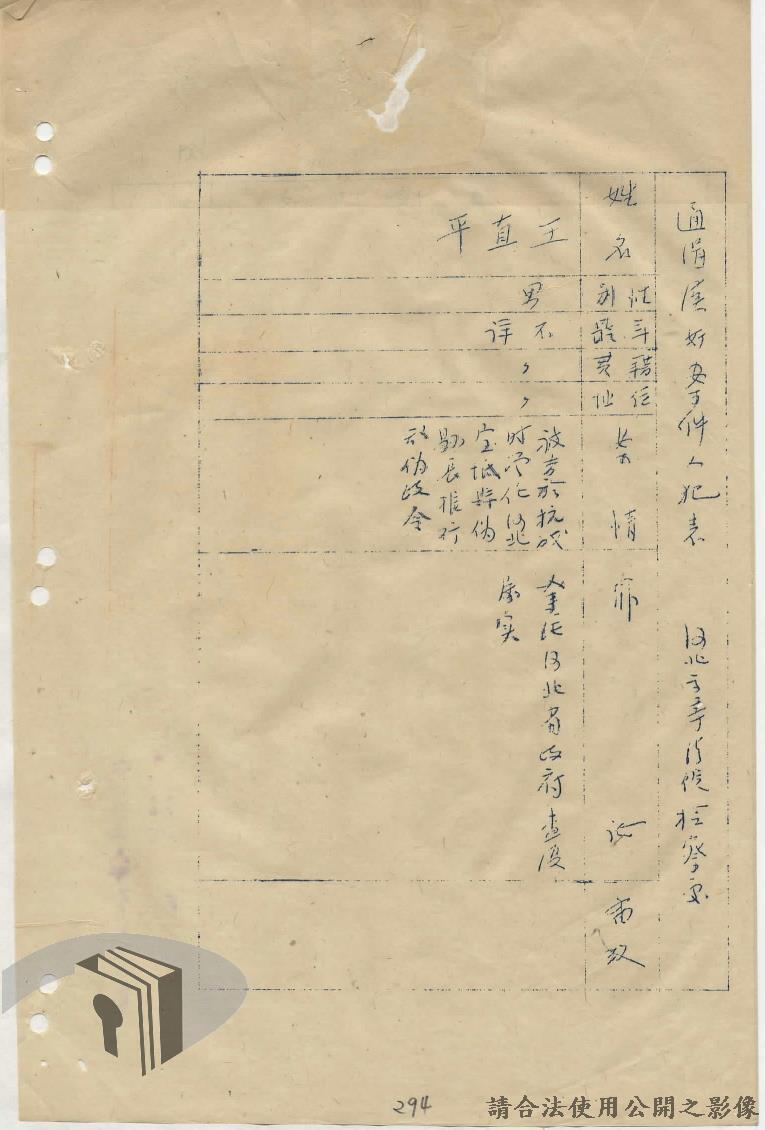 通緝漢奸案件人犯表 河北高等法院檢察處
姓名
性別
年齡
籍貫
住址
案情
佈
証
備攷
王直平
男
不詳
〃
〃
被告於抗战
时曾任河北
宝坻縣伪
縣長推行
敌伪政令
業經河北省政府查復
屬实
294
請合法使用公開之影像